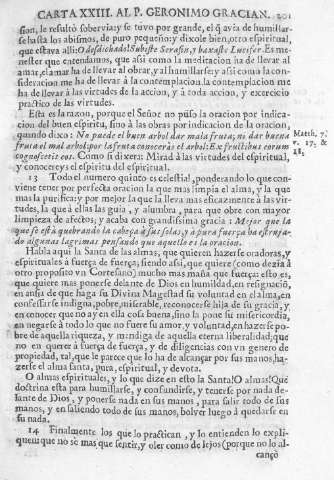 CARTA XXIII. AL P. GERONIMO GRACIAN. 201
sion, le resultò sobervia; y se tuvo por grande, el q̃ avia de humillar-
se hasta los abismos, de puro pequeño; y dixole bien, otro espiritual,
que estava alli: O desdichado! Subiste Serafin, y baxaste Lucifer. Es me-
nester que entendamos, que assi como la meditacion ha de llevar al
amar, el amar ha de llevar al obrar, y al humillarse; y assi como la con-
sideracion me ha de llevar à la contemplacion, la contemplacion me
ha de llevar à las virtudes de la accion, y à toda accion, y exercicio
practico de las virtudes.
Esta es la razon, porque el Señor no puso la oracion por indica-
cion del buen espiritu, sino à las obras por indicacion de la oracion,
quando dixo: No puede el buen arbol dar mala fruta; ni dar buena
fruta el mal arbol: por la fruta conocereis el arbol: Ex fructibus eorum
cognoscetis eos. Como si dixera: Mirad à las virtudes del espiritual,
y conocereys el espiritu del espiritual.
Matth. 7.
v. 17. &
18.
13 Todo el numero quinto es celestial, ponderando lo que con-
viene tener por perfecta oracion la que mas limpia el alma, y la que
mas la purifica; y por mejor la que la lleva mas eficazmente à las vir-
tudes, la que à ellas las guia, y alumbra, para que obre con mayor
limpieza de afectos; y acaba con grandissima gracia: Mejor que la
que se está quebrando la cabeça à sus solas, y à pura fuerça ha estruja-
do algunas lagrimas pensando que aquello es la oracion.
Habla aqui la Santa de las almas, que quieren hazerse oradoras, y
espirituales à fuerça de fuerça; siendo assi, que quiere (como dezia à
otro proposito vn Cortesano) mucho mas maña que fuerça: esto es,
que quiere mas ponerse delante de Dios en humildad, en resignació,
en ansia de que haga su Divina Magestad su voluntad en el alma, en
confessarse indigna, pobre, miserable, reconocerse hija de su gracia, y
en conocer que no ay en ella cosa buena, sino la pone su misericordia,
en negarse à todo lo que no fuere su amor, y voluntad, en hazerse po-
bre de aquella riqueza, y mendiga de aquella eterna liberalidad; que
no en querer à fuerça de fuerça, y de diligencias con vn genero de
propiedad, tal, que le parece que lo ha de alcançar por sus manos, ha-
zerse el alma santa, pura, espiritual, y devota.
O almas espirituales, y lo que dize en esto la Santa! O almas! Que
doctrina esta para humillarse, y confundirse, y tenerse por nada de-
lante de Dios, y ponerse nada en sus manos, para salir todo de sus
manos, y en saliendo todo de sus manos, bolver luego à quedarse en
su nada.
14 Finalmente los que lo practican, y lo entienden lo expli-
quen; que no se mas que sentir, y oler como de lejos (porque no lo al-
cançò